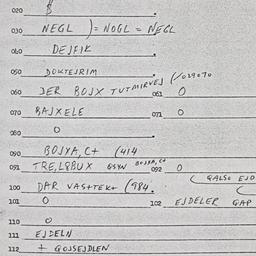 020 B
030 NEGL )= NOGL = NEGL
060 DEJFIK
050 DOKTEJRIM
060 DER BOJX TVTMIRVEJ (/029070
061 O
070 BAJXELE 071 O
080 O
090 BOJYA, C+ (414
091 TRE,LQBUX GSYN BOJYA, C+
092 O
(QALSO EJO
100 DAR VASTTEK+ (984.
101 O 102 EJDELER GAP
110 O
111 EJDELN
112 + GOJSEJDLEN